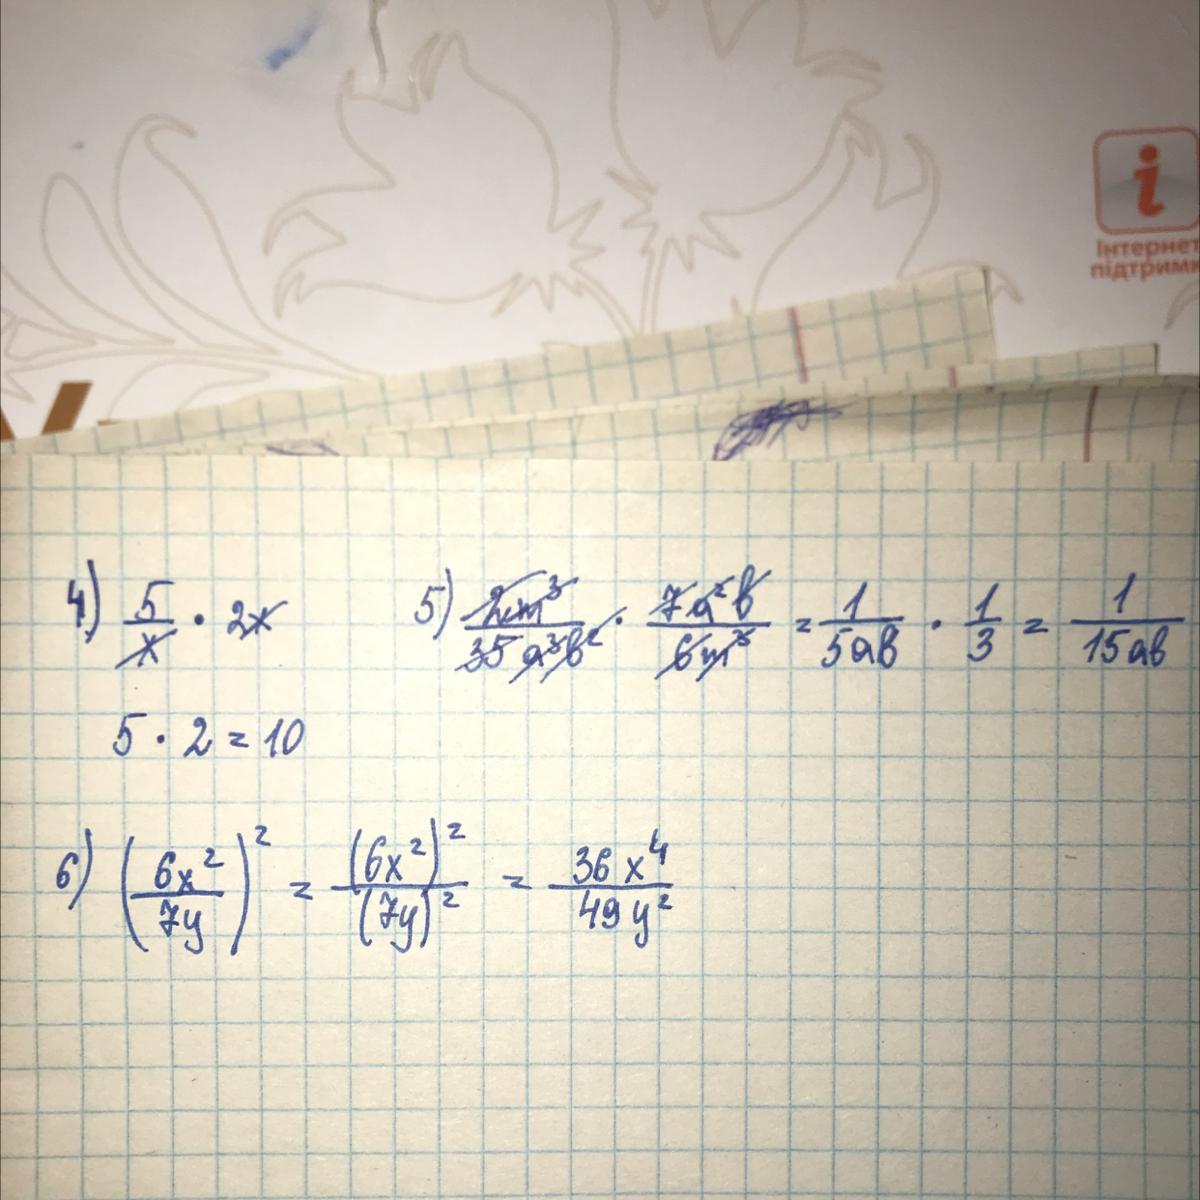 Інтернет
підтримк
4) 5/x · 2x
5) 2m³/35a³b² · 7a²b/6m³ = 1/5ab · 1/3 = 1/15ab
5 · 2 = 10
6) (6x²/7y)² = (6x²)²/(7y)² = 36x⁴/49y²